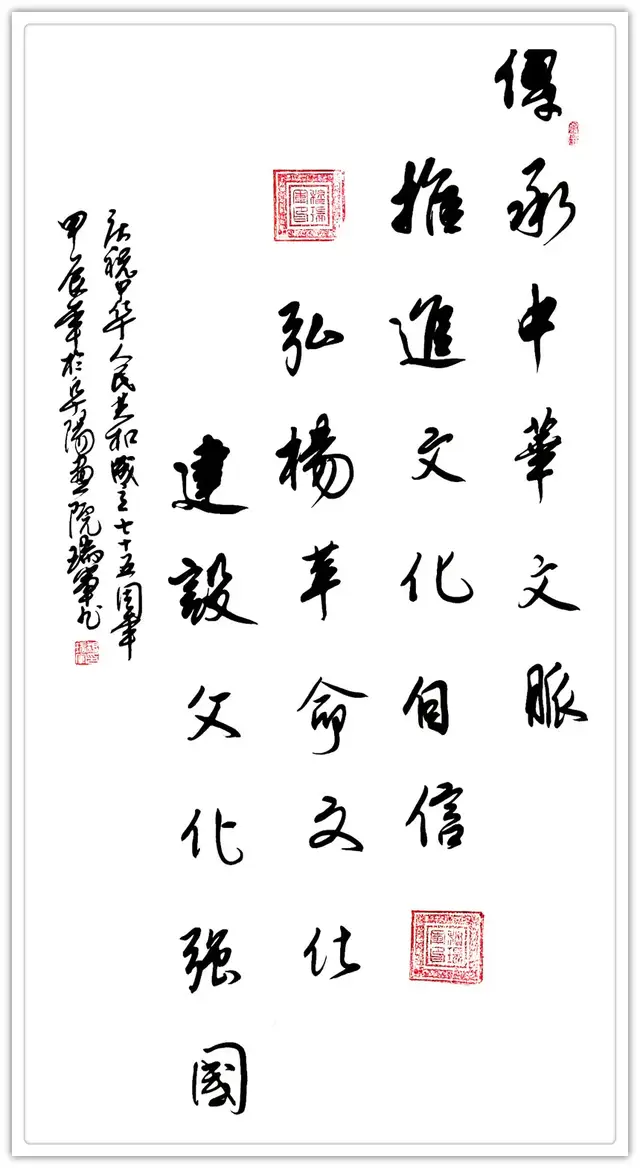 傳承中華文脈
推進文化自信
弘楊革命文化
建設文化强國
庆祝中华人民共和成立七十五周年
甲辰年於阜陽畫院瑞軍书